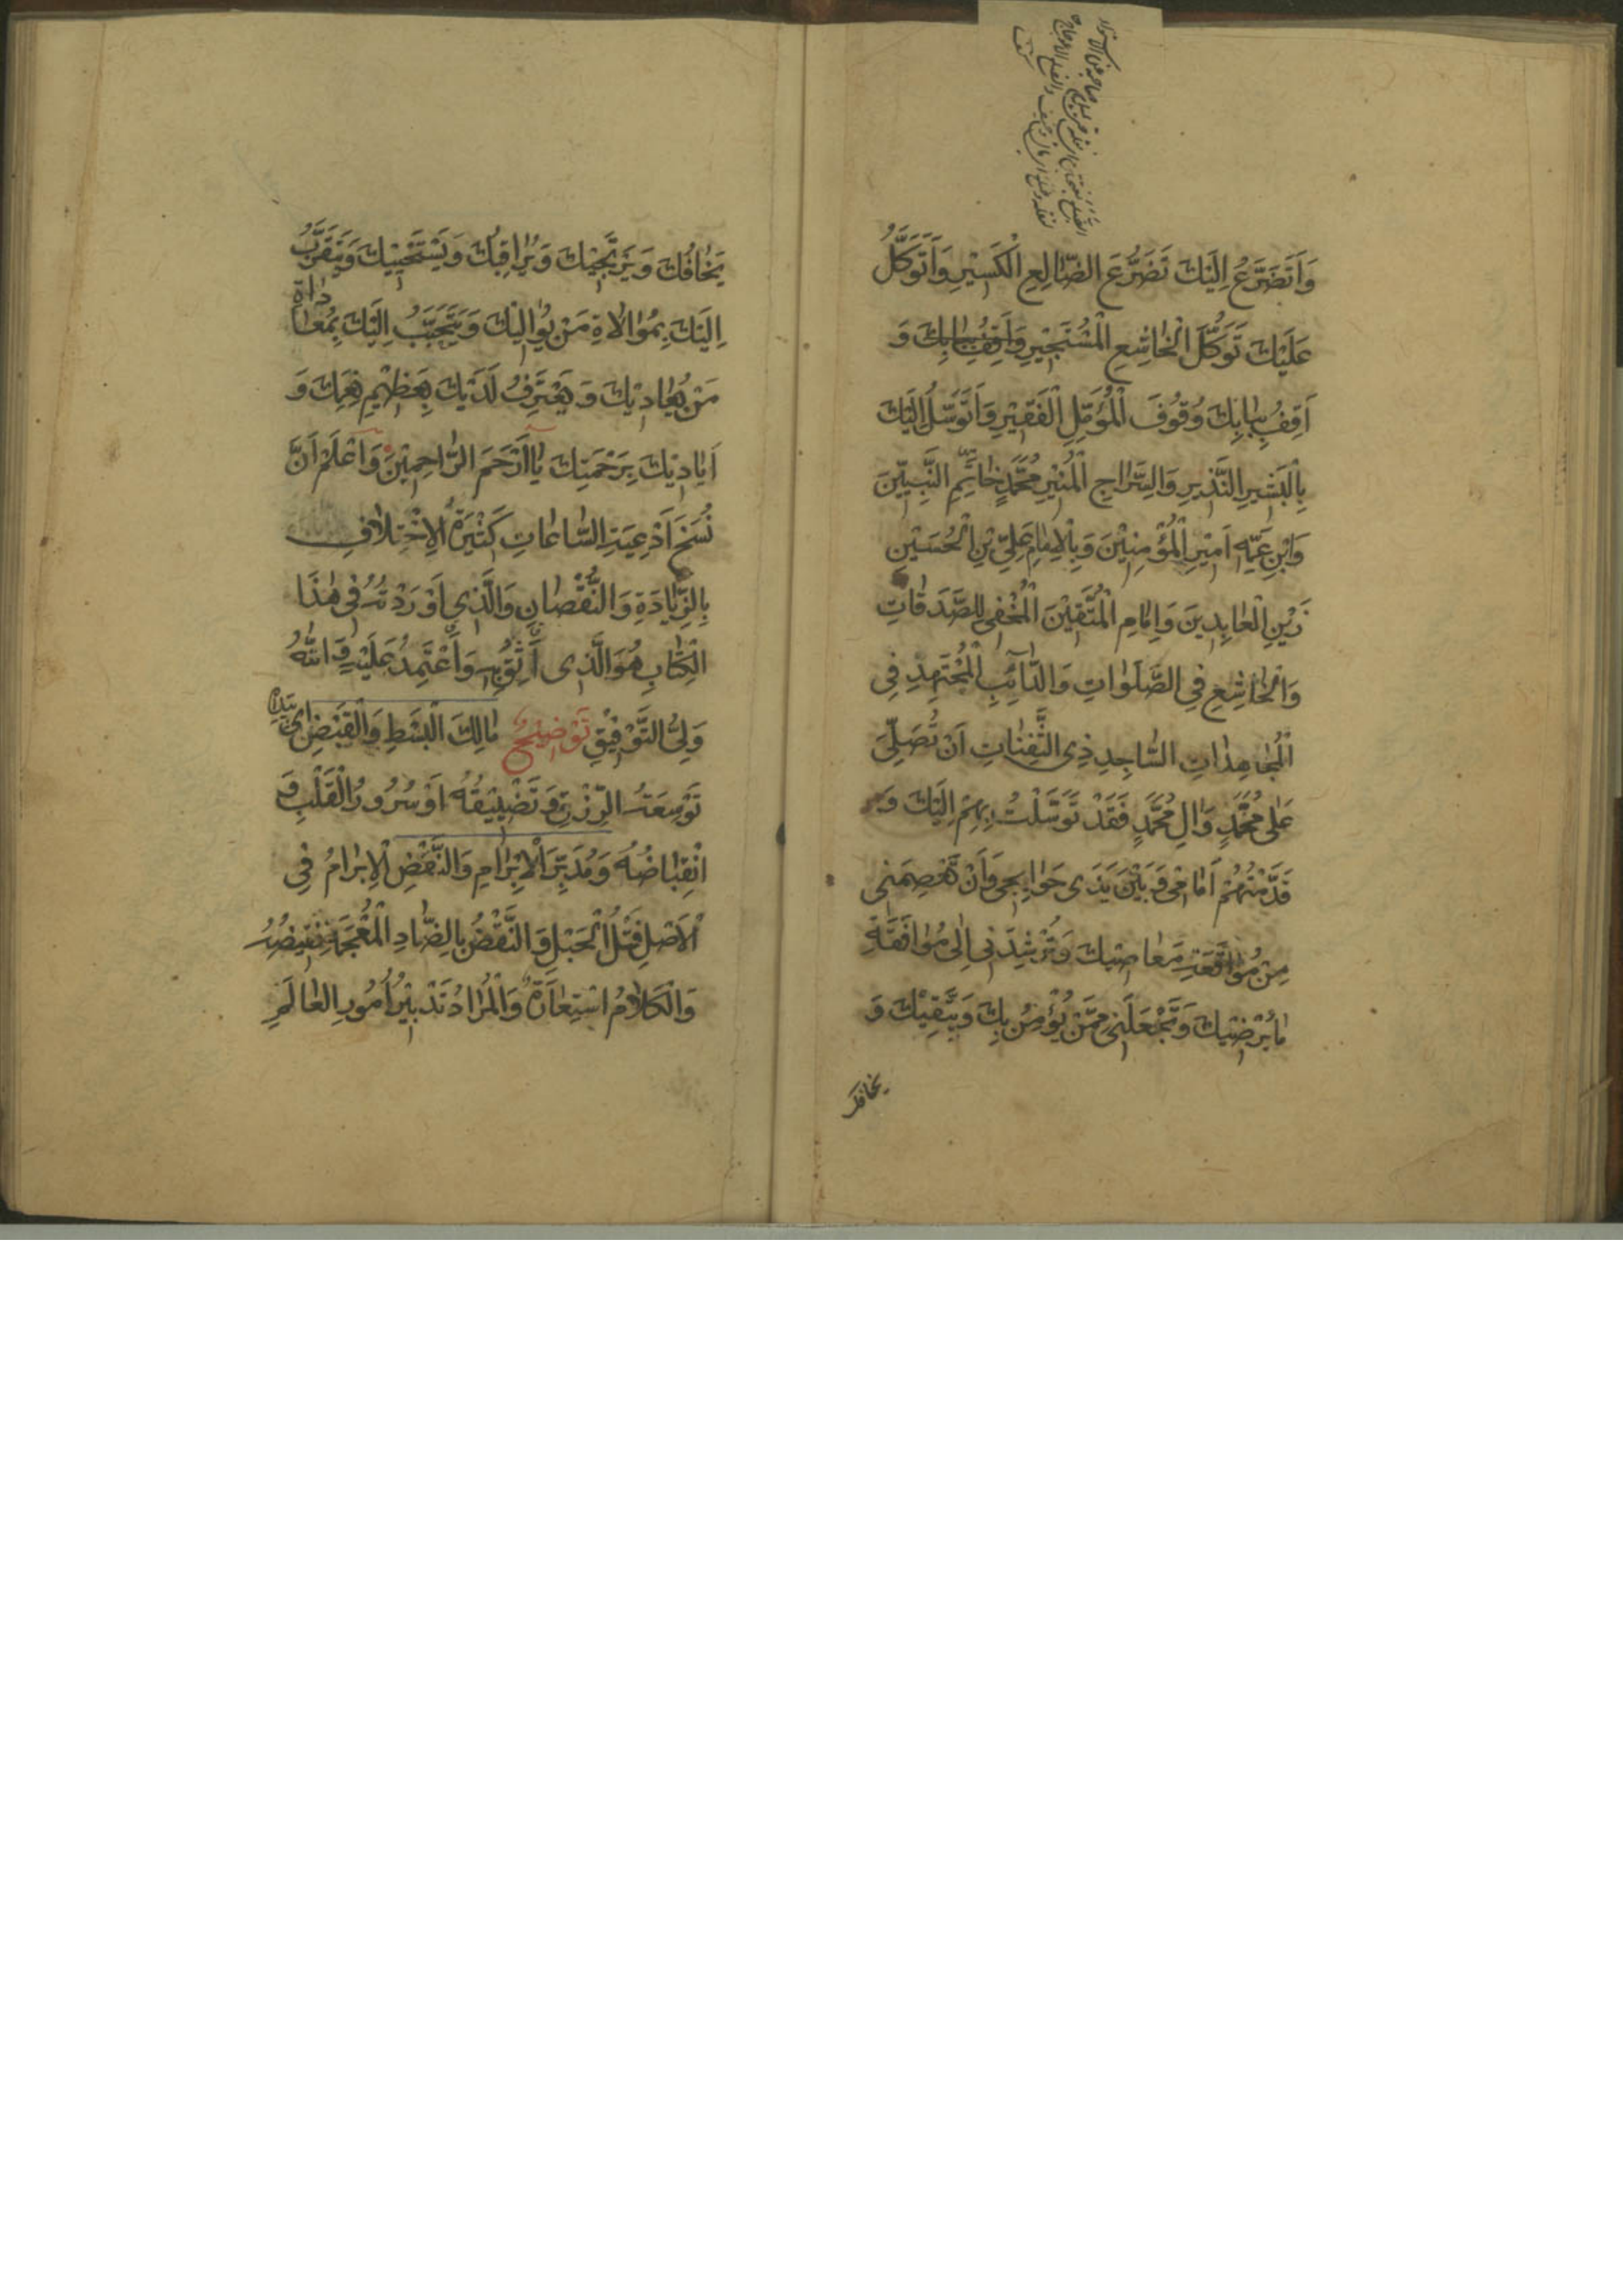 وَاَتَضَرَّعُ اِلَيْكَ تَضَرُّعَ الضّٰالِعِ الْكَسٖيرِ وَاَتَوَكَّلُ
عَلَيْكَ تَوَكُّلَ الْخٰاشِعِ الْمُسْتَجٖيرِ وَاَقِفُ بِبٰابِكَ وَ
اَقِفُ بِبٰابِكَ وُقُوفَ الْمُؤَمِّلِ الْفَقٖيرِ وَاَتَوَسَّلُ اِلَيْكَ
بِالْبَشٖيرِ النَّذٖيرِ وَالسِّرٰاجِ الْمُنٖيرِ مُحَمَّدٍ خٰاتَمِ النَّبِيّٖنَ
وَابْنِ عَمِّهٖ اَمٖيرِ الْمُؤْمِنٖينَ وَبِالْاِمٰامِ عَلِيِّ بْنِ الْحُسَيْنِ
زَيْنِ الْعٰابِدٖينَ وَاِمٰامِ الْمُتَّقٖينَ الْمُخْفٖى لِلصَّدَقٰاتِ
وَالْخٰاشِعِ فِي الصَّلَوٰاتِ وَالدّٰآئِبِ الْمُجْتَهِدِ فِي
الْمُجٰاهِدٰاتِ السّٰاجِدِ ذِى الثَّفِنٰاتِ اَنْ تُصَلِّيَ
عَلٰى مُحَمَّدٍ وَاٰلِ مُحَمَّدٍ فَقَدْ تَوَسَّلْتُ بِهِمْ اِلَيْكَ وَ
قَدَّمْتُهُمْ اَمٰامٖى وَبَيْنَ يَدَى حَوٰائِجٖى وَاَنْ تَعْصِمَنٖى
مِنْ مُوٰاقَعَةِ مَعٰاصٖيكَ وَتُرْشِدَنٖى اِلٰى مُوٰافَقَةِ
مٰا يُرْضٖيكَ وَتَجْعَلَنٖى مِمَّنْ يُؤْمِنُ بِكَ وَيَتَّقٖيكَ وَ
يخافك
يَخٰافُكَ وَيَرْتَجٖيكَ وَيُرٰاقِبُكَ وَيَسْتَحْيٖيكَ وَيَتَقَرَّبُ
اِلَيْكَ بِمُوٰالاٰةِ مَنْ يُوٰالٖيكَ وَيَتَحَبَّبُ اِلَيْكَ بِمُعٰادٰاةِ
مَنْ يُعٰادٖيكَ وَيَعْتَرِفُ لَدَيْكَ بِعَظٖيمِ نِعَمِكَ وَ
اَيٰادٖيكَ بِرَحْمَتِكَ يٰا اَرْحَمَ الرّٰاحِمٖينَ وَاعْلَمْ اَنَّ
نُسَخَ اَدْعِيَةِ السّٰاعٰاتِ كَثٖيرَةُ الْاِخْتِلاٰفِ
بِالزِّيٰادَةِ وَالنُّقْصٰانِ وَالَّذٖى اَوْرَدْتُهُ فٖى هٰذَا
الْكِتٰابِ هُوَ الَّذٖى اَثِقُ بِهٖ وَاَعْتَمِدُ عَلَيْهِ وَاللّٰهُ
وَلِيُّ التَّوْفٖيقِ تَوْضٖيحٌ مٰالِكَ الْبَسْطِ وَالْقَبْضِ اى بيده
تَوْسِعَةُ الرِّزْقِ وَتَضْيٖيقُهُ اَوْ سُرُورُ الْقَلْبِ وَ
انْقِبٰاضُهُ وَمُدَبِّرَ الْاِبْرٰامِ وَالنَّقْضِ الْاِبْرٰامُ فِي
الْاَصْلِ فَتْلُ الْحَبْلِ وَالنَّقْضُ بِالضّٰادِ الْمُعْجَمَةِ نَقٖيضُهُ
وَالْكَلاٰمُ اسْتِعٰارَةٌ وَالْمُرٰادُ تَدْبٖيرُ اُمُورِ الْعٰالَمِ